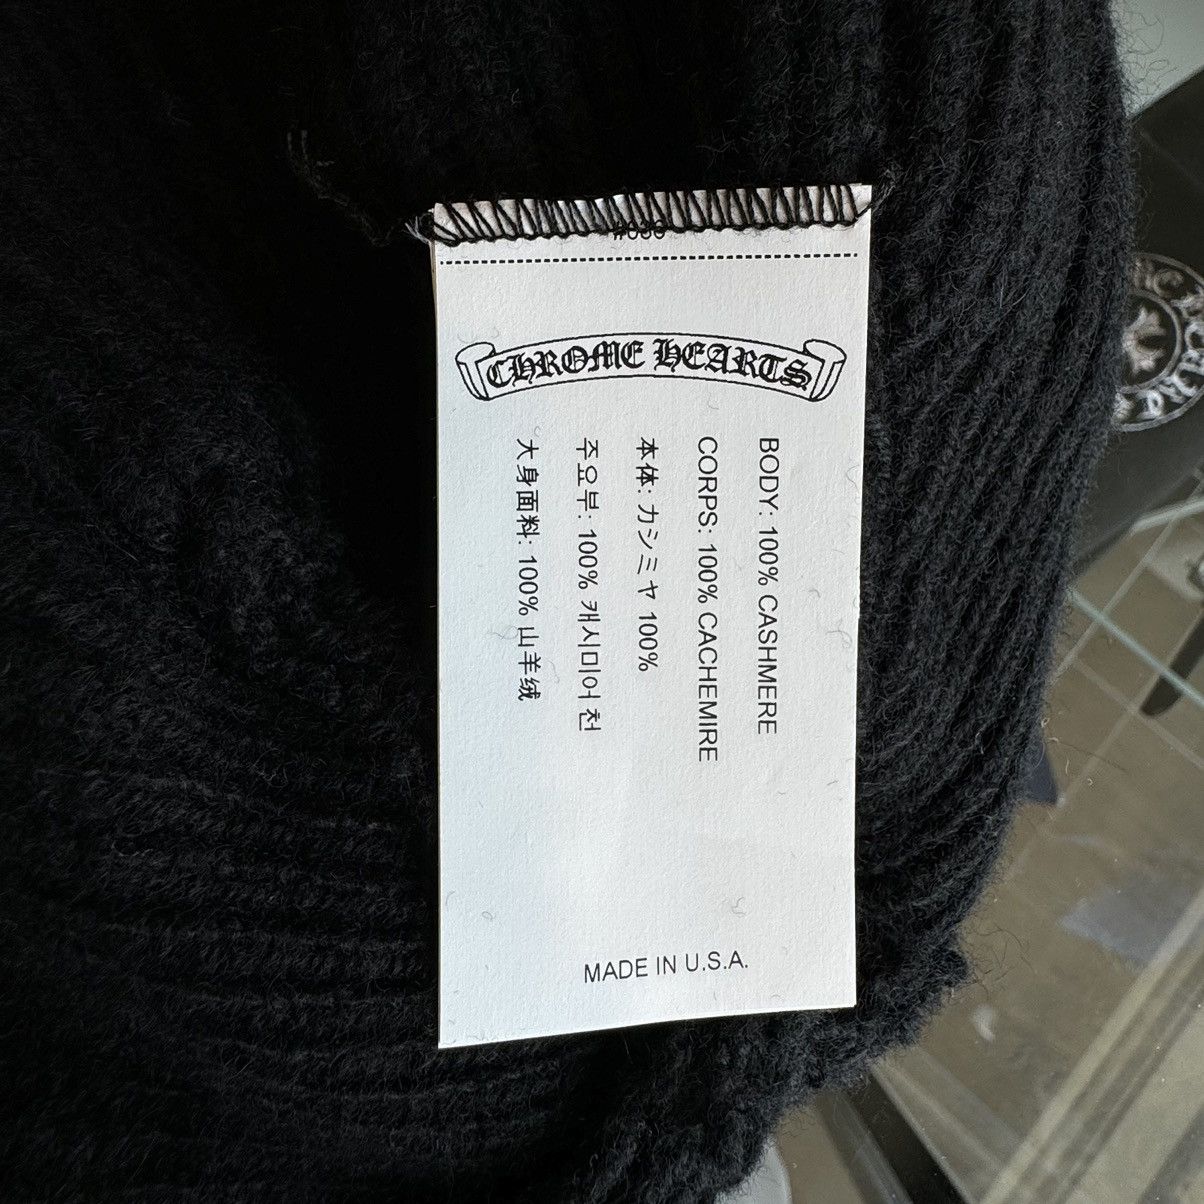 CHROME HEARTS
BODY: 100% CASHMERE
CORPS: 100% CACHEMIRE
本体: カシミヤ 100%
주요부: 100% 캐시미어 천
大身面料: 100% 山羊绒
MADE IN U.S.A.